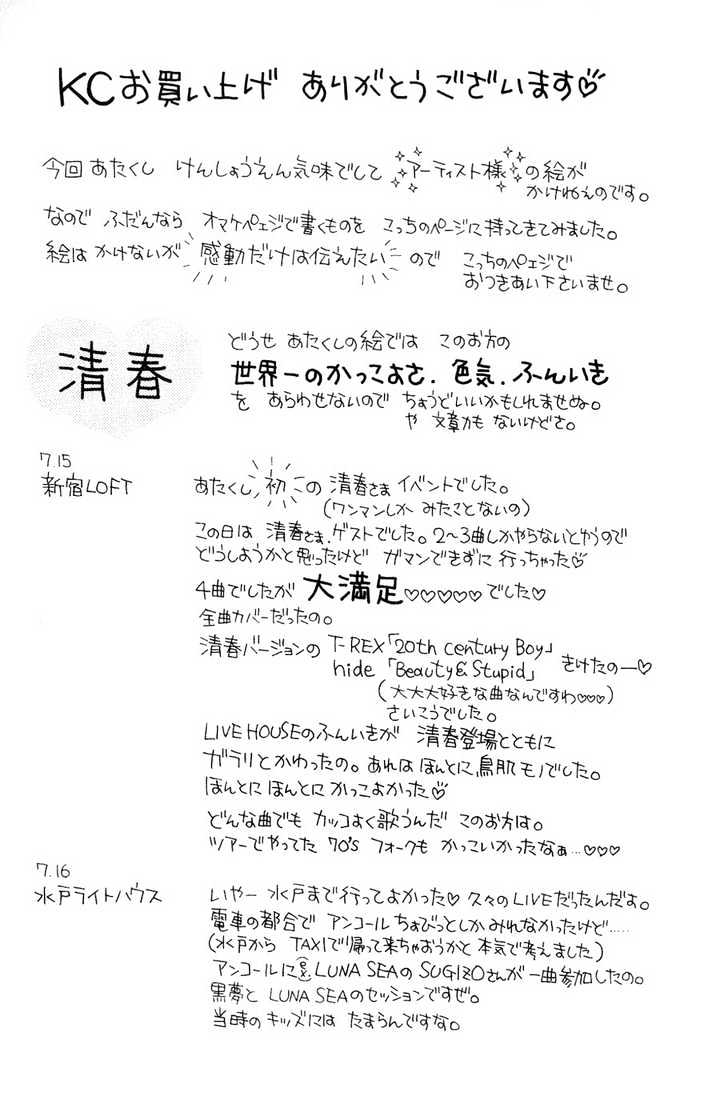 KCお買い上げ ありがとうございます♡
今回 あたくし けんしょうえん気味でして アーティスト様の絵が
かけねえのです。
なので ふだんなら オマケペェジで書くものを こっちのページに持ってきてみました。
絵は かけないが 感動だけは伝えたい ので こっちのペェジで
おつきあい下さいませ。
清春
どうせ あたくしの絵では このお方の
世界一のかっこよさ.色気.ふんいき
を あらわせないので ちょうどいいかもしれませぬ。
や 文章力も ないけどさ。
7.15
新宿LOFT
あたくし 初 の 清春さま イベントでした。
(ワンマンしか みたことないの)
この日は 清春さま.ゲストでした。2〜3曲しかやらないとゆうので
どうしようかと思ったけど ガマンできずに 行っちゃった♡
4曲でしたが 大満足♡♡♡♡♡でした♡
全曲カバーだったの。
清春バージョンの T-REX「20th century Boy」
hide「Beauty&Stupid」 きけたのー♡
(大大大好きな曲なんですわ♡♡♡)
さいこうでした。
LIVE HOUSEのふんいきが 清春登場とともに
ガラリとかわったの。あれは ほんとに鳥肌モノでした。
ほんとに ほんとに かっこよかった♡
どんな曲でも カッコよく歌うんだ このお方は。
ツアーでやってた 70's フォークも かっこいかったなぁ…♡♡♡
7.16
水戸ライトハウス
いやー 水戸まで行ってよかった♡ 久々のLIVEだったんだよ。
電車の都合で アンコール ちょびっとしかみれなかったけど……
(水戸から TAXIで帰って来ちゃおうかと 本気で考えました)
アンコールに LUNA SEAの SUGIZOさんが 一曲参加したの。
黒夢と LUNA SEAのセッションですぜ。
当時のキッズには たまらんですな。